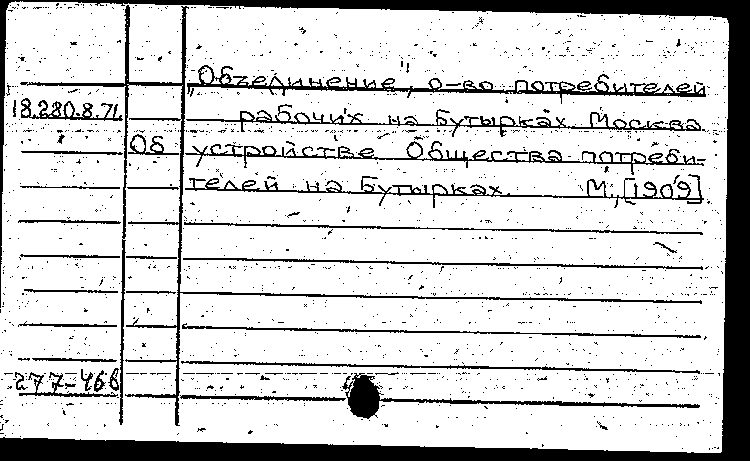 „Объединение", о-во потребителей
18.280.8.71 рабочих на Бутырках Москва
Об устройстве Общества потреби-
телей на Бутырках. М., [1909]
277-46в